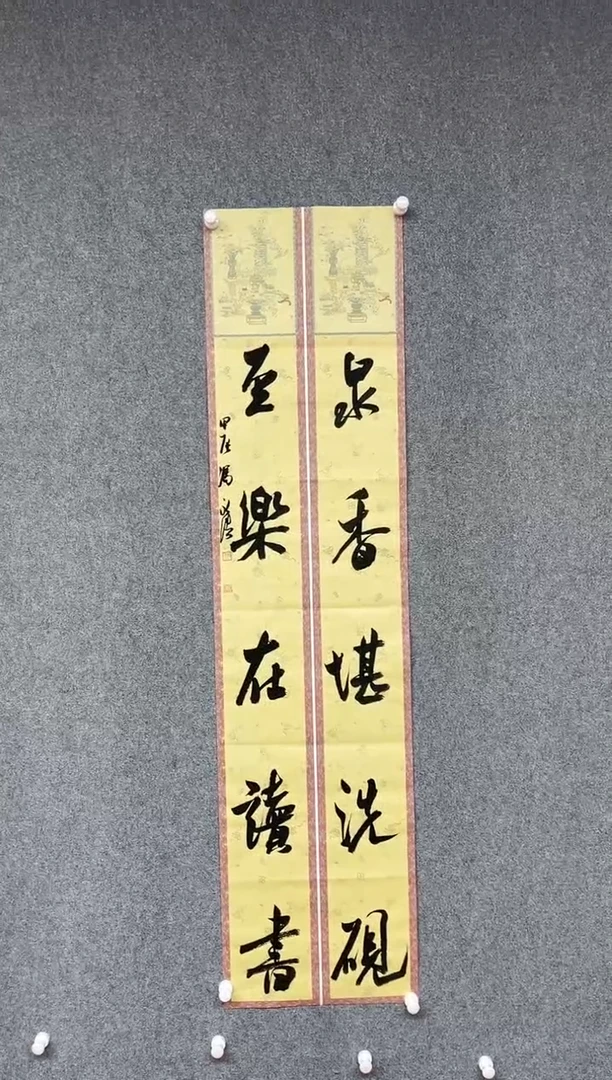 泉香堪洗硯
至樂在讀書
甲辰馮